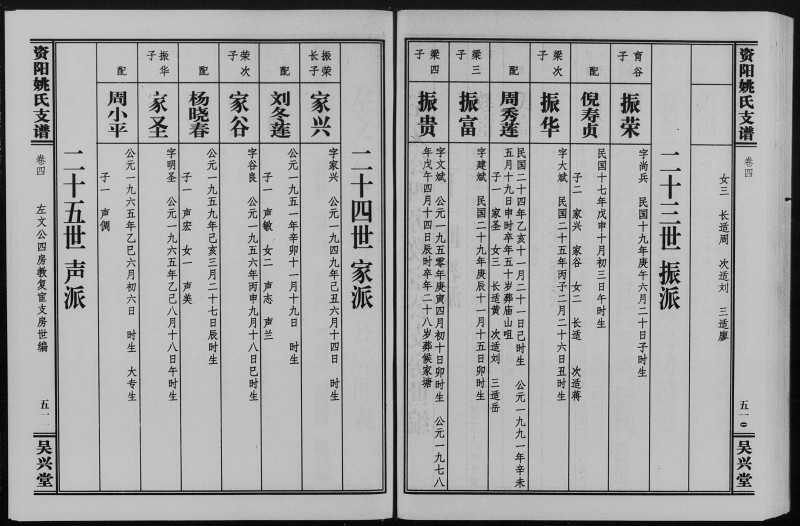 资阳姚氏支谱
卷四
五一〇
吴兴堂
女三 长适周 次适刘 三适廖
二十三世 振派
育谷
子
振荣
字尚兵 民国十九年庚午六月二十日子时生
配
倪寿贞
民国十七年戊申十月初三日午时生
子二 家兴 家谷 女二 长适 次适蒋
梁次
子
振华
字大斌 民国二十五年丙子二月二十六日丑时生
配
周秀莲
民国二十四年乙亥十一月二十一日己时生 公元一九九一年辛未
五月十九日申时卒年五十岁葬庙山咀
子一 家圣 女三 长适黄 次适刘 三适岳
梁三
子
振富
字建斌 民国二十九年庚辰十一月十五日卯时生
梁四
子
振贵
字文斌 公元一九五零年庚寅四月初十日卯时生 公元一九七八
年戊午四月十四日辰时卒年二十八岁葬候家塘
二十四世 家派
振荣
长子
家兴
字家兴 公元一九四九年己丑六月十四日 时生
配
刘冬莲
公元一九五一年辛卯十一月十九日 时生
子一 声敏 女二 声志 声兰
荣次
子
家谷
字谷良 公元一九五六年丙申九月十八日巳时生
配
杨晓春
公元一九五九年己亥三月二十七日辰时生
子一 声宏 女一 声美
振华
子
家圣
字明圣 公元一九六五年乙己八月十八日午时生
配
周小平
公元一九六五年乙巳六月初六日 时生 大专生
子一 声倜
二十五世 声派
资阳姚氏支谱
卷四
左文公四房教复宦支房世编
五一一
吴兴堂